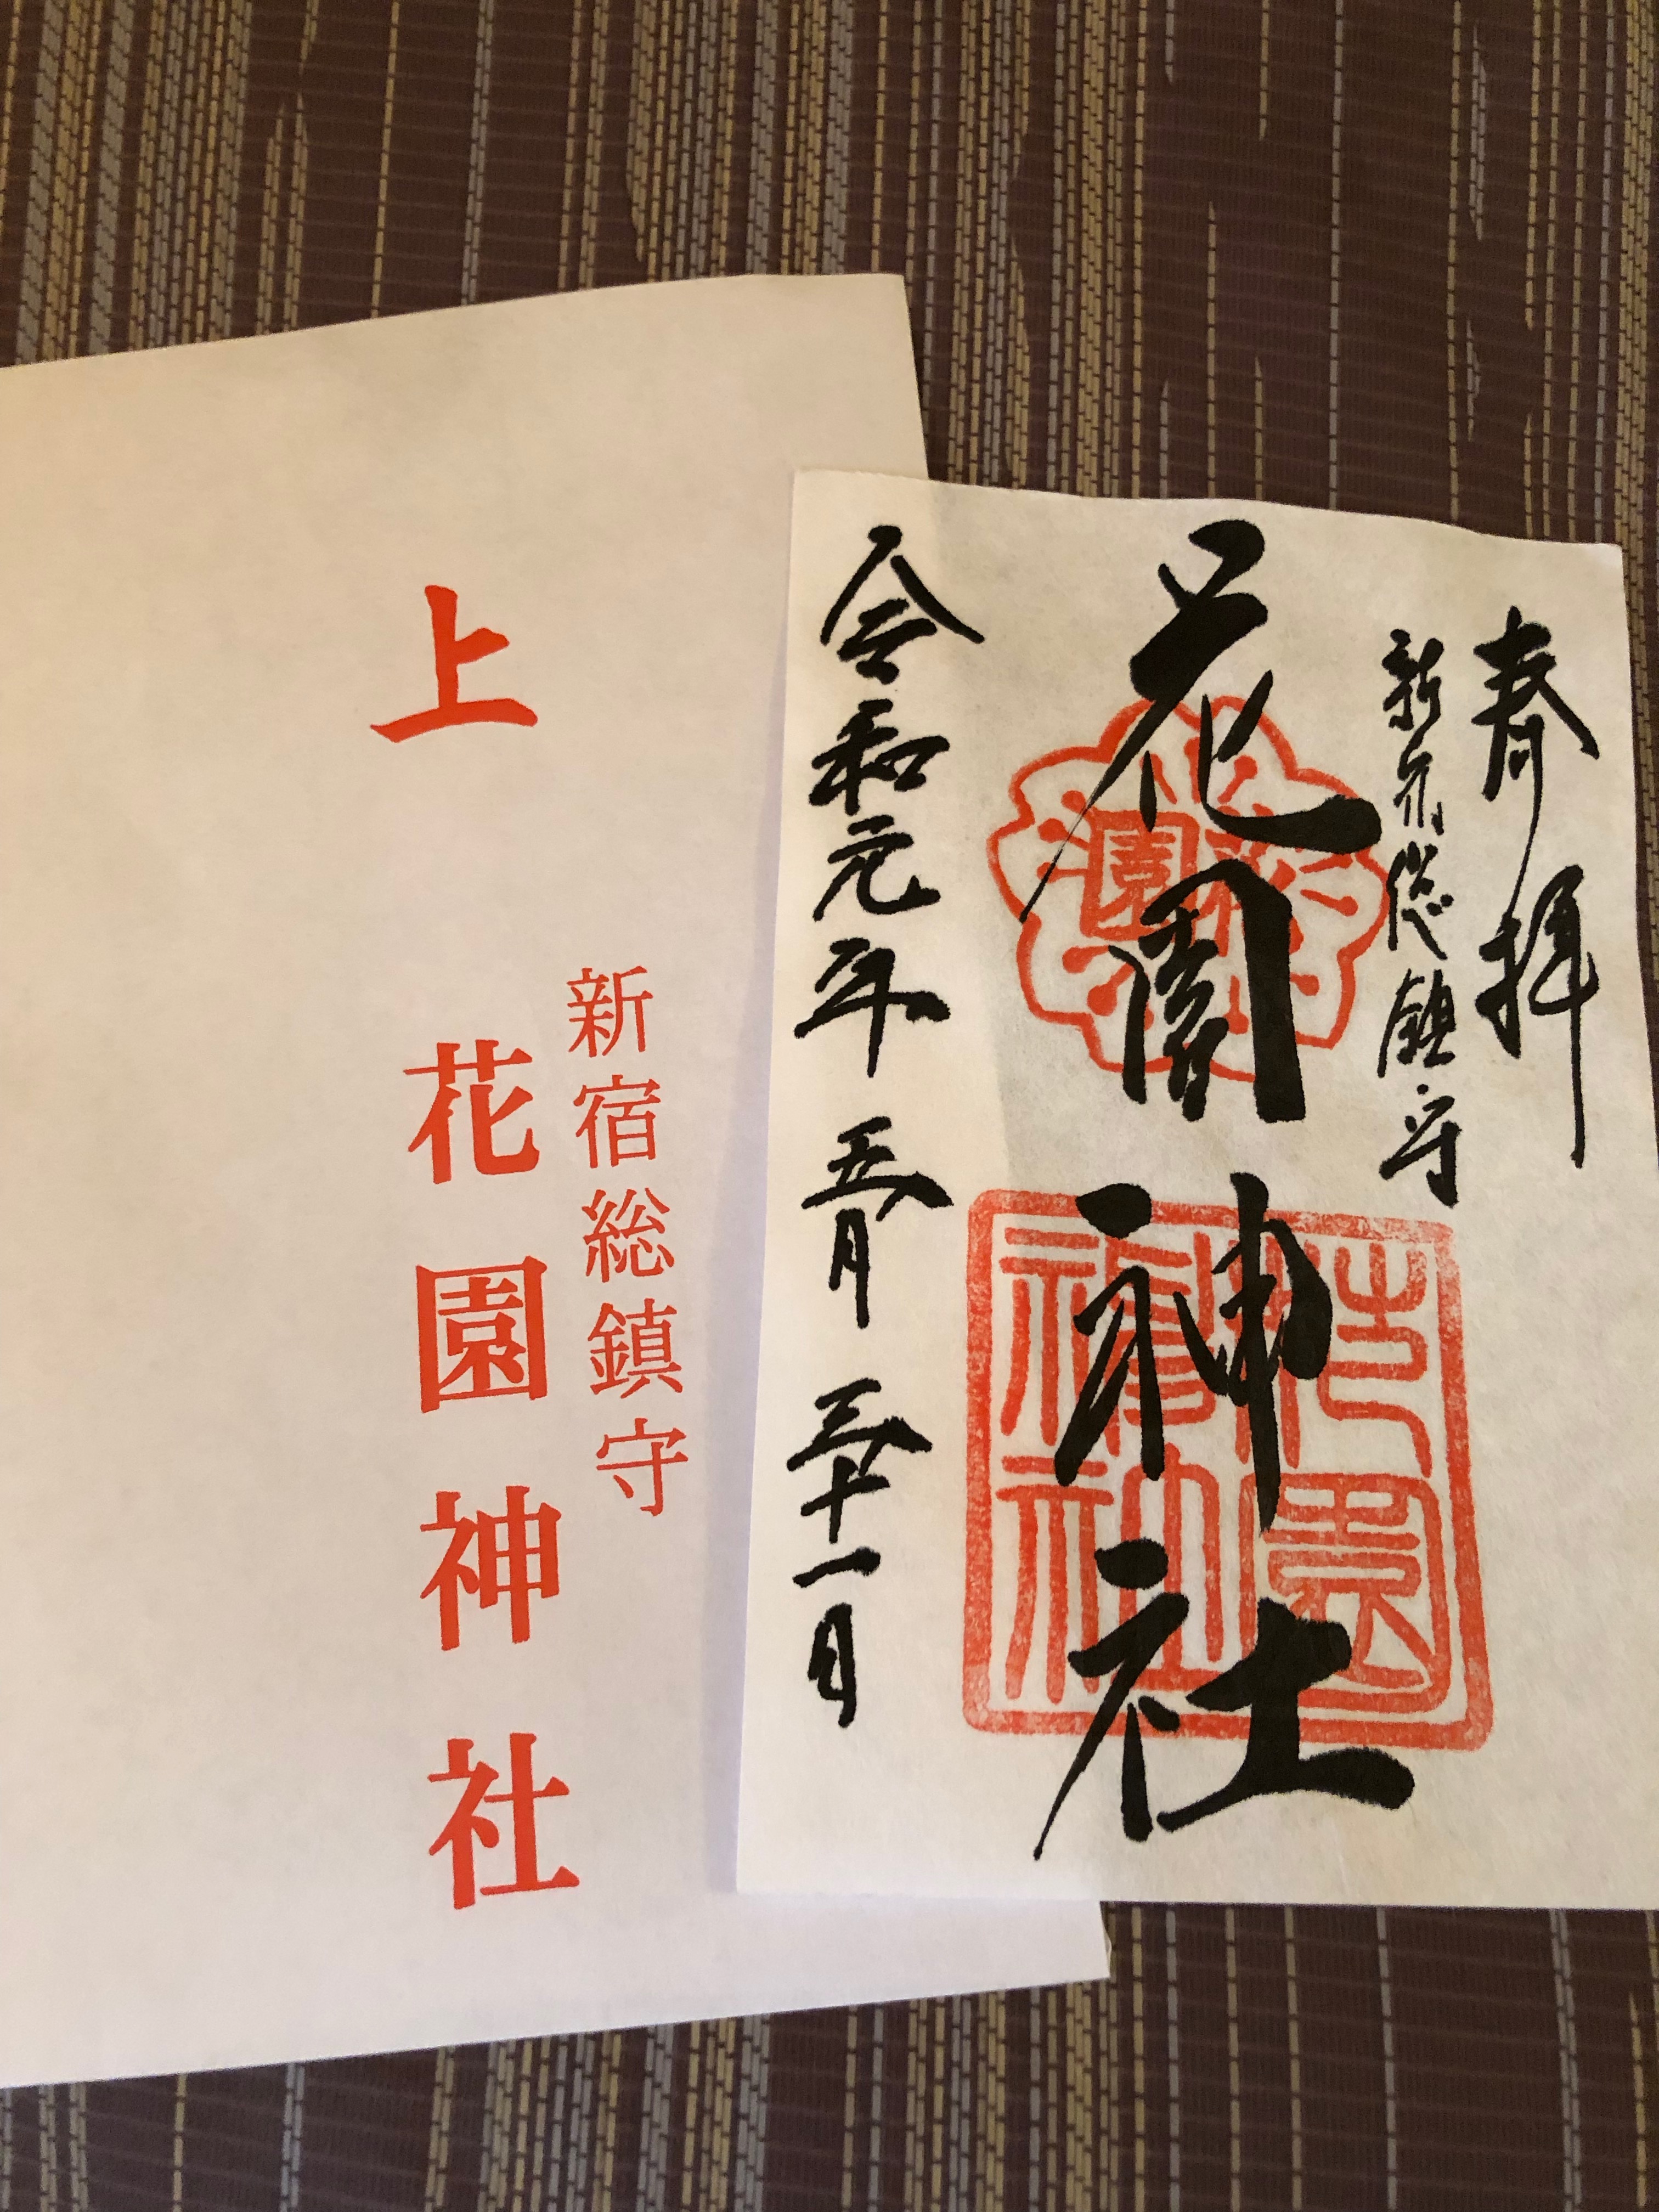 奉拝
新宿総鎮守
花園神社
令和元年 五月 三十一日
花園神社
上
新宿総鎮守
花園神社